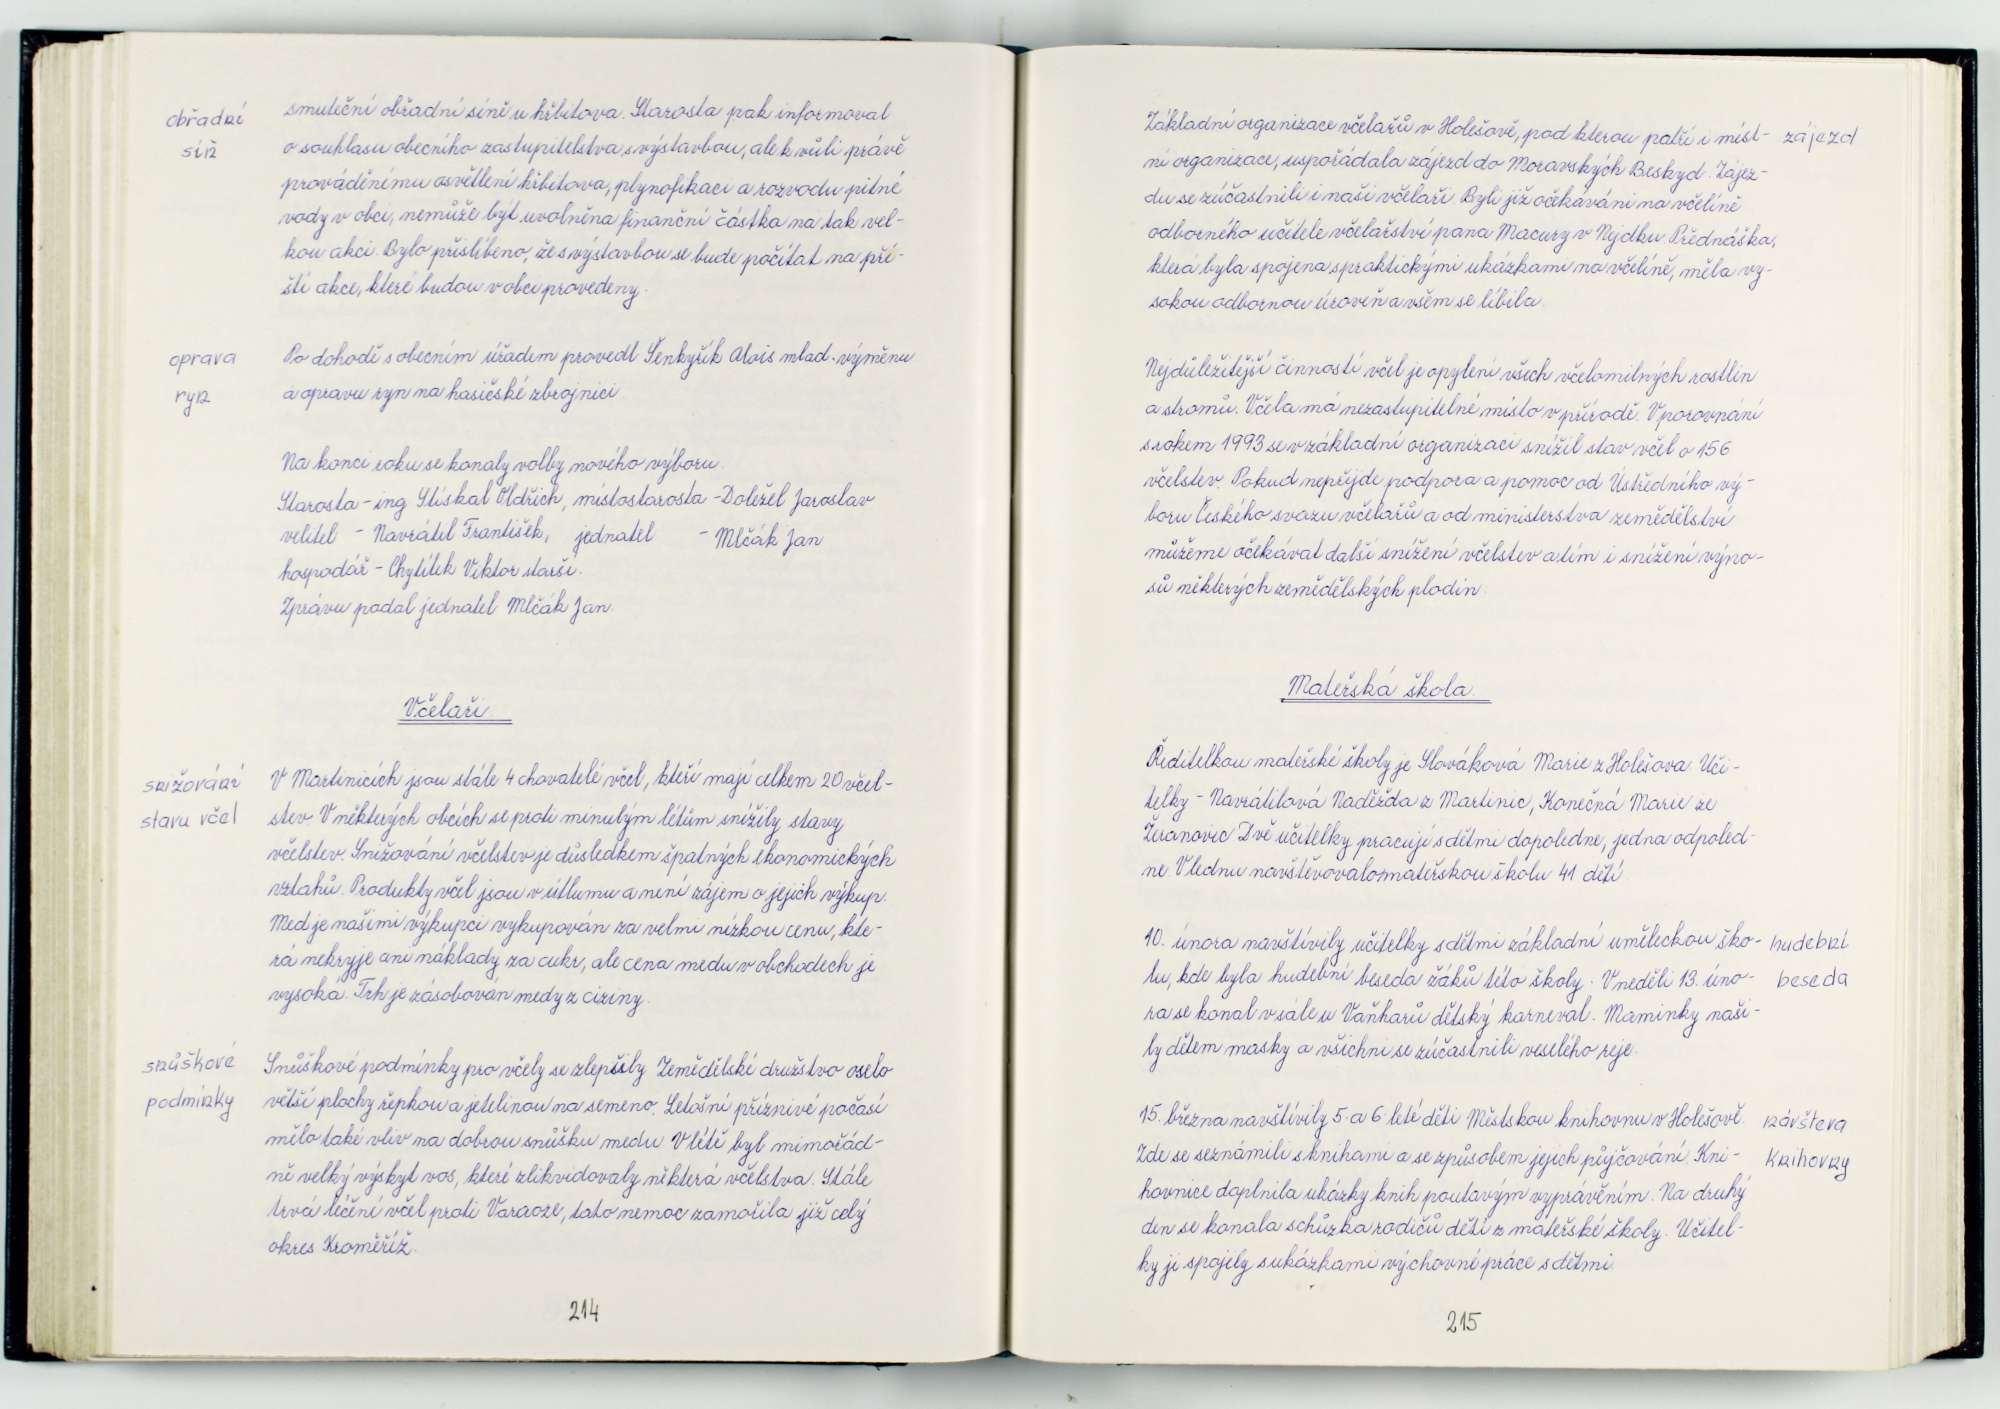 obřadní
síň
smuteční obřadní síně u hřbitova. Starosta pak informoval
o souhlasu obecního zastupitelstva s výstavbou, ale k vůli právě
prováděnému osvětlení hřbitova, plynofikaci a rozvodu pitné
vody v obci, nemůže být uvolněna finanční částka na tak vel-
kou akci. Bylo přislíbeno, že s výstavbou se bude počítat na pří-
ští akce, které budou v obci provedeny.
oprava
ryn
Po dohodě s obecním úřadem provedl Šenkyřík Alois mlad. výměnu
a opravu ryn na hasičské zbrojnici
Na konci roku se konaly volby nového výboru.
Starosta - ing Stískal Oldřich, místostarosta - Doležel Jaroslav
velitel - Navrátil František, jednatel - Mlčák Jan
hospodář - Chytílek Viktor starší.
Zprávu podal jednatel Mlčák Jan.
Včelaři.
snižování
stavu včel
V Martinicích jsou stále 4 chovatelé včel, kteří mají celkem 20 včel-
stev. V některých obcích se proti minulým létům snížily stavy
včelstev. Snižování včelstev je důsledkem špatných ekonomických
vztahů. Produkty včel jsou v útlumu a není zájem o jejich výkup.
Med je našimi výkupci vykupován za velmi nízkou cenu, kte-
rá nekryje ani náklady za cukr, ale cena medu v obchodech je
vysoká. Trh je zásobován medy z ciziny.
snůškové
podmínky
Snůškové podmínky pro včely se zlepšily. Zemědělské družstvo oselo
větší plochy řepkou a jetelinou na semeno. Letošní příznivé počasí
mělo také vliv na dobrou snůšku medu. V létě byl mimořád-
ně velký výskyt vos, které zlikvidovaly některá včelstva. Stále
trvá léčení včel proti Varaoze, tato nemoc zamořila již celý
okres Kroměříž.
214
Základní organizace včelařů v Holešově, pod kterou patří i míst-
ní organizace, uspořádala zájezd do Moravských Beskyd. Zájez-
du se zúčastnili i naši včelaři. Byli již očekáváni na včelíně
odborného učitele včelařství pana Macury v Nýdku. Přednáška,
která byla spojena s praktickými ukázkami na včelíně, měla vy-
sokou odbornou úroveň a všem se líbila.
zájezd
Nejdůležitější činností včel je opylení všech včelomilných rostlin
a stromů. Včela má nezastupitelné místo v přírodě. V porovnání
s rokem 1993 se v základní organizaci snížil stav včel o 156
včelstev. Pokud nepřijde podpora a pomoc od Ústředního vý-
boru Českého svazu včelařů a od ministerstva zemědělství
můžeme očekávat další snížení včelstev a tím i snížení výno-
sů některých zemědělských plodin.
Mateřská škola.
Ředitelkou mateřské školy je Slováková Marie z Holešova. Uči-
telky - Navrátilová Naděžda z Martinic, Konečná Marie ze
Žeranovic. Dvě učitelky pracují s dětmi dopoledne, jedna odpoled-
ne. V lednu navštěvovalo mateřskou školu 41 dětí.
10. února navštívily učitelky s dětmi základní uměleckou ško-
lu, kde byla hudební beseda žáků této školy. V neděli 13. úno-
ra se konal v sále u Vaňharů dětský karneval. Maminky naši-
ly dětem masky a všichni se zúčastnili veselého reje.
hudební
beseda
15. března navštívily 5-a 6 leté děti Městskou knihovnu v Holešově.
Zde se seznámili s knihami a se způsobem jejich půjčování. Kni-
hovnice doplnila ukázky knih poutavým vyprávěním. Na druhý
den se konala schůzka rodičů dětí z mateřské školy. Učitel-
ky ji spojily s ukázkami výchovné práce s dětmi.
návšteva
knihovny
215